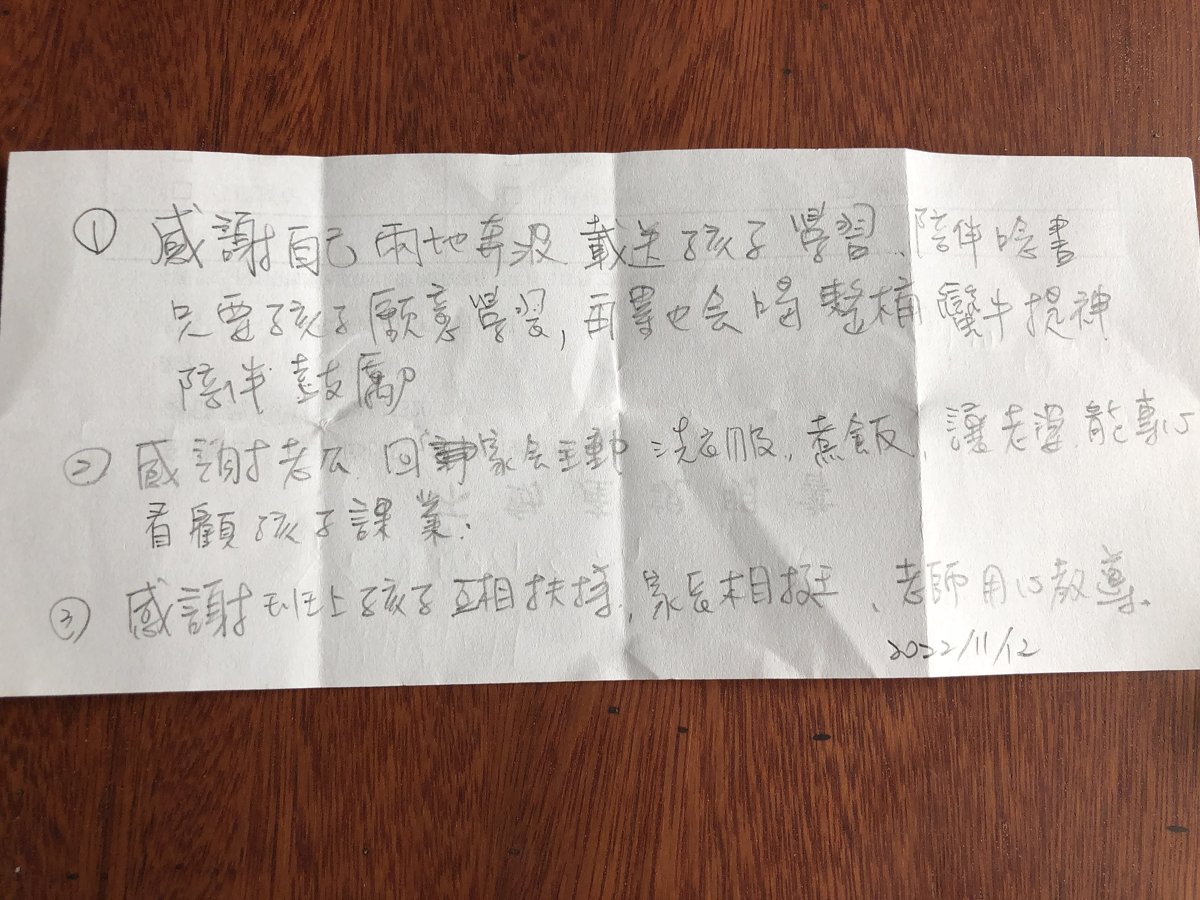 ① 感謝自己兩地奔波載送孩子學習、陪伴唸書
只要孩子願意學習,再累也会喝整桶蠻牛提神
陪伴鼓勵
② 感謝老公回家会主動洗衣服、煮飯,讓老婆能專心
看顧孩子課業.
③ 感謝班上孩子互相扶持、家長相挺、老師用心教導.
2022/11/12